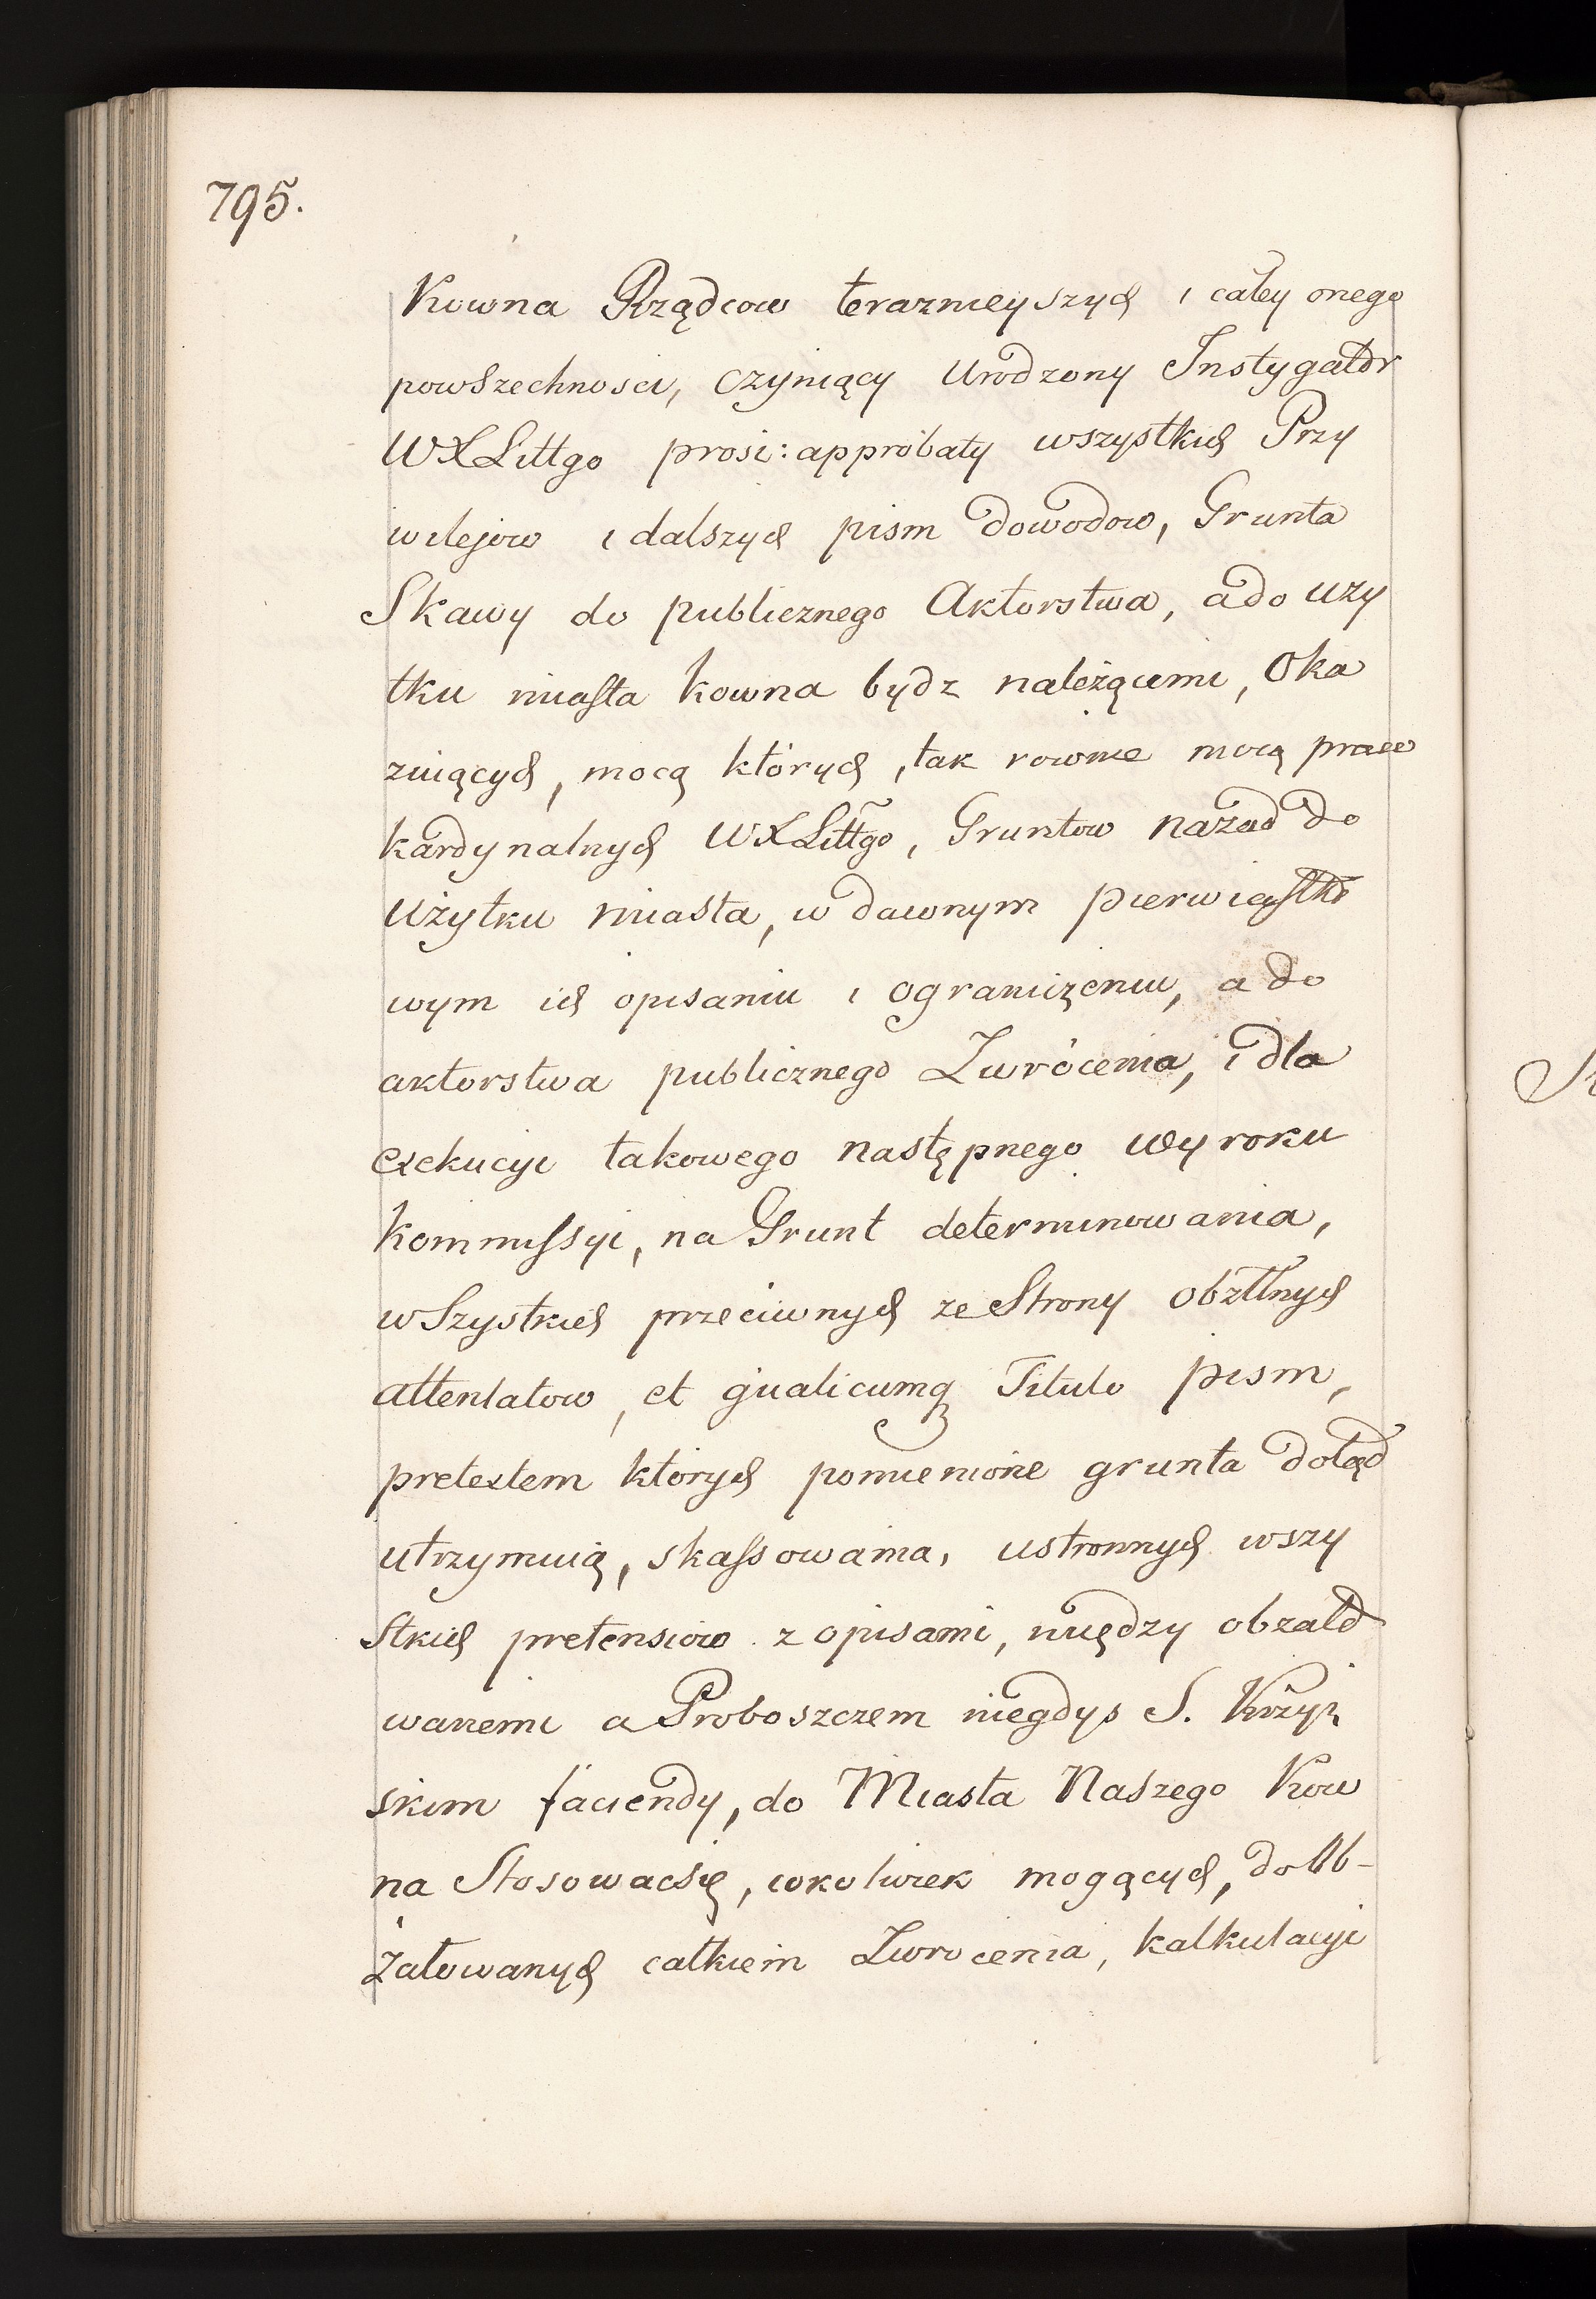 795.
Kowna Rządcow teraznieyszych i całey onego
powszechnosci, czyniący Urodzony Instygator
WXLittgo prosi: approbaty wszystkich Przy
wilejow i dalszych pism dowodow, Grunta
Skawy do publicznego Aktorstwa, a do uzy
tku miasta kowna bydz należącemi, Oka
zuiących, mocą których, tak rownie mocą praw
kardynalnych WXLittgo, Gruntow nazad do
użytku miasta, w dawnym pierwiastko
wym ich opisaniu i ograniczeniu, a do
aktorstwa publicznego Zwrócenia, i dla
exekucyi takowego następnego wyroku
kommissyi, na Grunt determinowania,
wszystkich przeciwnych ze Strony obżttnych
attentatow, et qualicumq Titulo pism,
pretextem których pomienione grunta dotąd
utrzymuią, skassowania, ustronnych wszy
stkich pretensiow z opisami, między obzało
wanemi a Proboszczem niegdys S. Krzyz
skim faciendy, do Miasta Naszego Kow
na Stosowacsię, cokolwiek mogących, do Ob-
żałowanych całkiem Zwrocenia, kalkulacyi